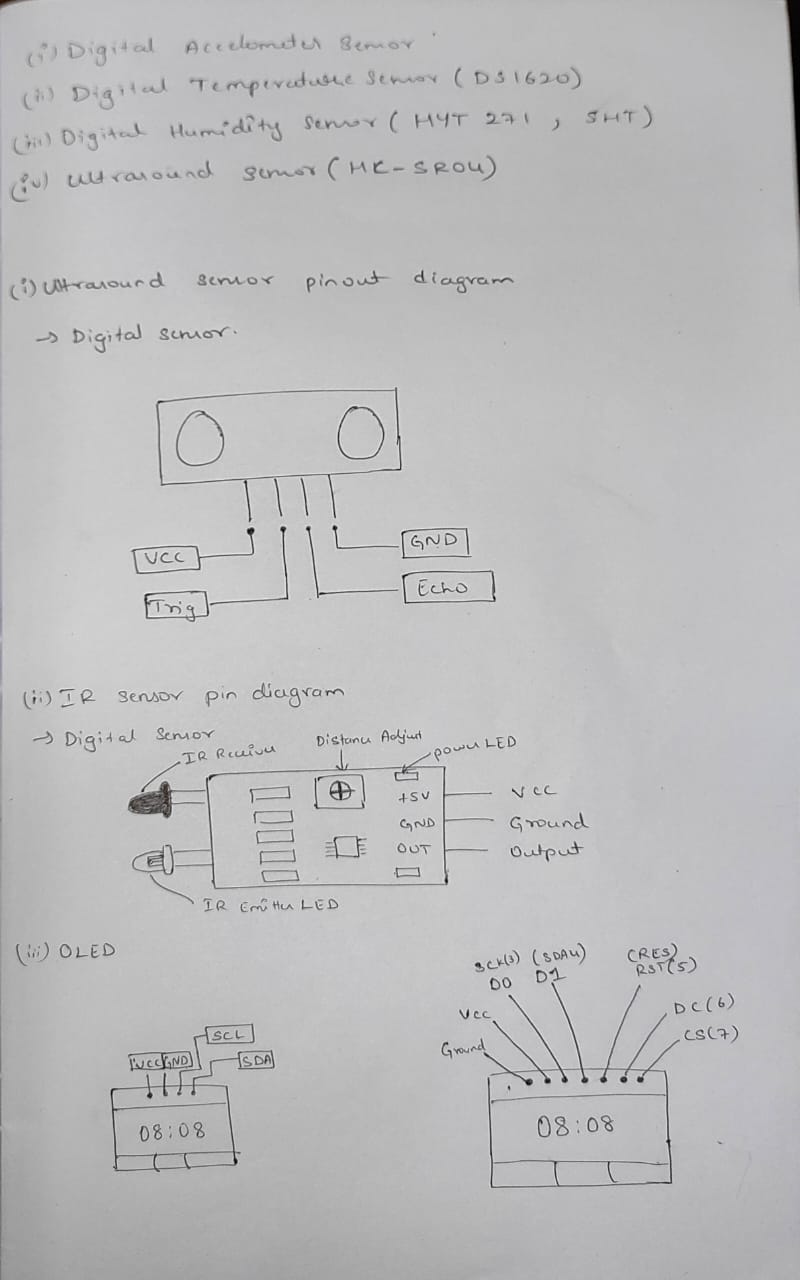 (i) Digital Accelometer Sensor
(ii) Digital Temperature Sensor (DS1620)
(iii) Digital Humidity Sensor (HYT 271, SHT)
(iv) Ultrasound sensor (HC-SR04)
(i) Ultrasound sensor pinout diagram
→ Digital sensor.
GND
VCC
Echo
Trig
(ii) IR sensor pin diagram
→ Digital Sensor
IR Receiver
Distance Adjust
power LED
+5V
VCC
GND
Ground
OUT
Output
IR Emitter LED
(iii) OLED
SCL
VCC GND
SDA
08:08
SCK(3) (SDA4)
D0 D1
(RES)
RST(5)
DC(6)
CS(7)
Vcc
Ground
08:08